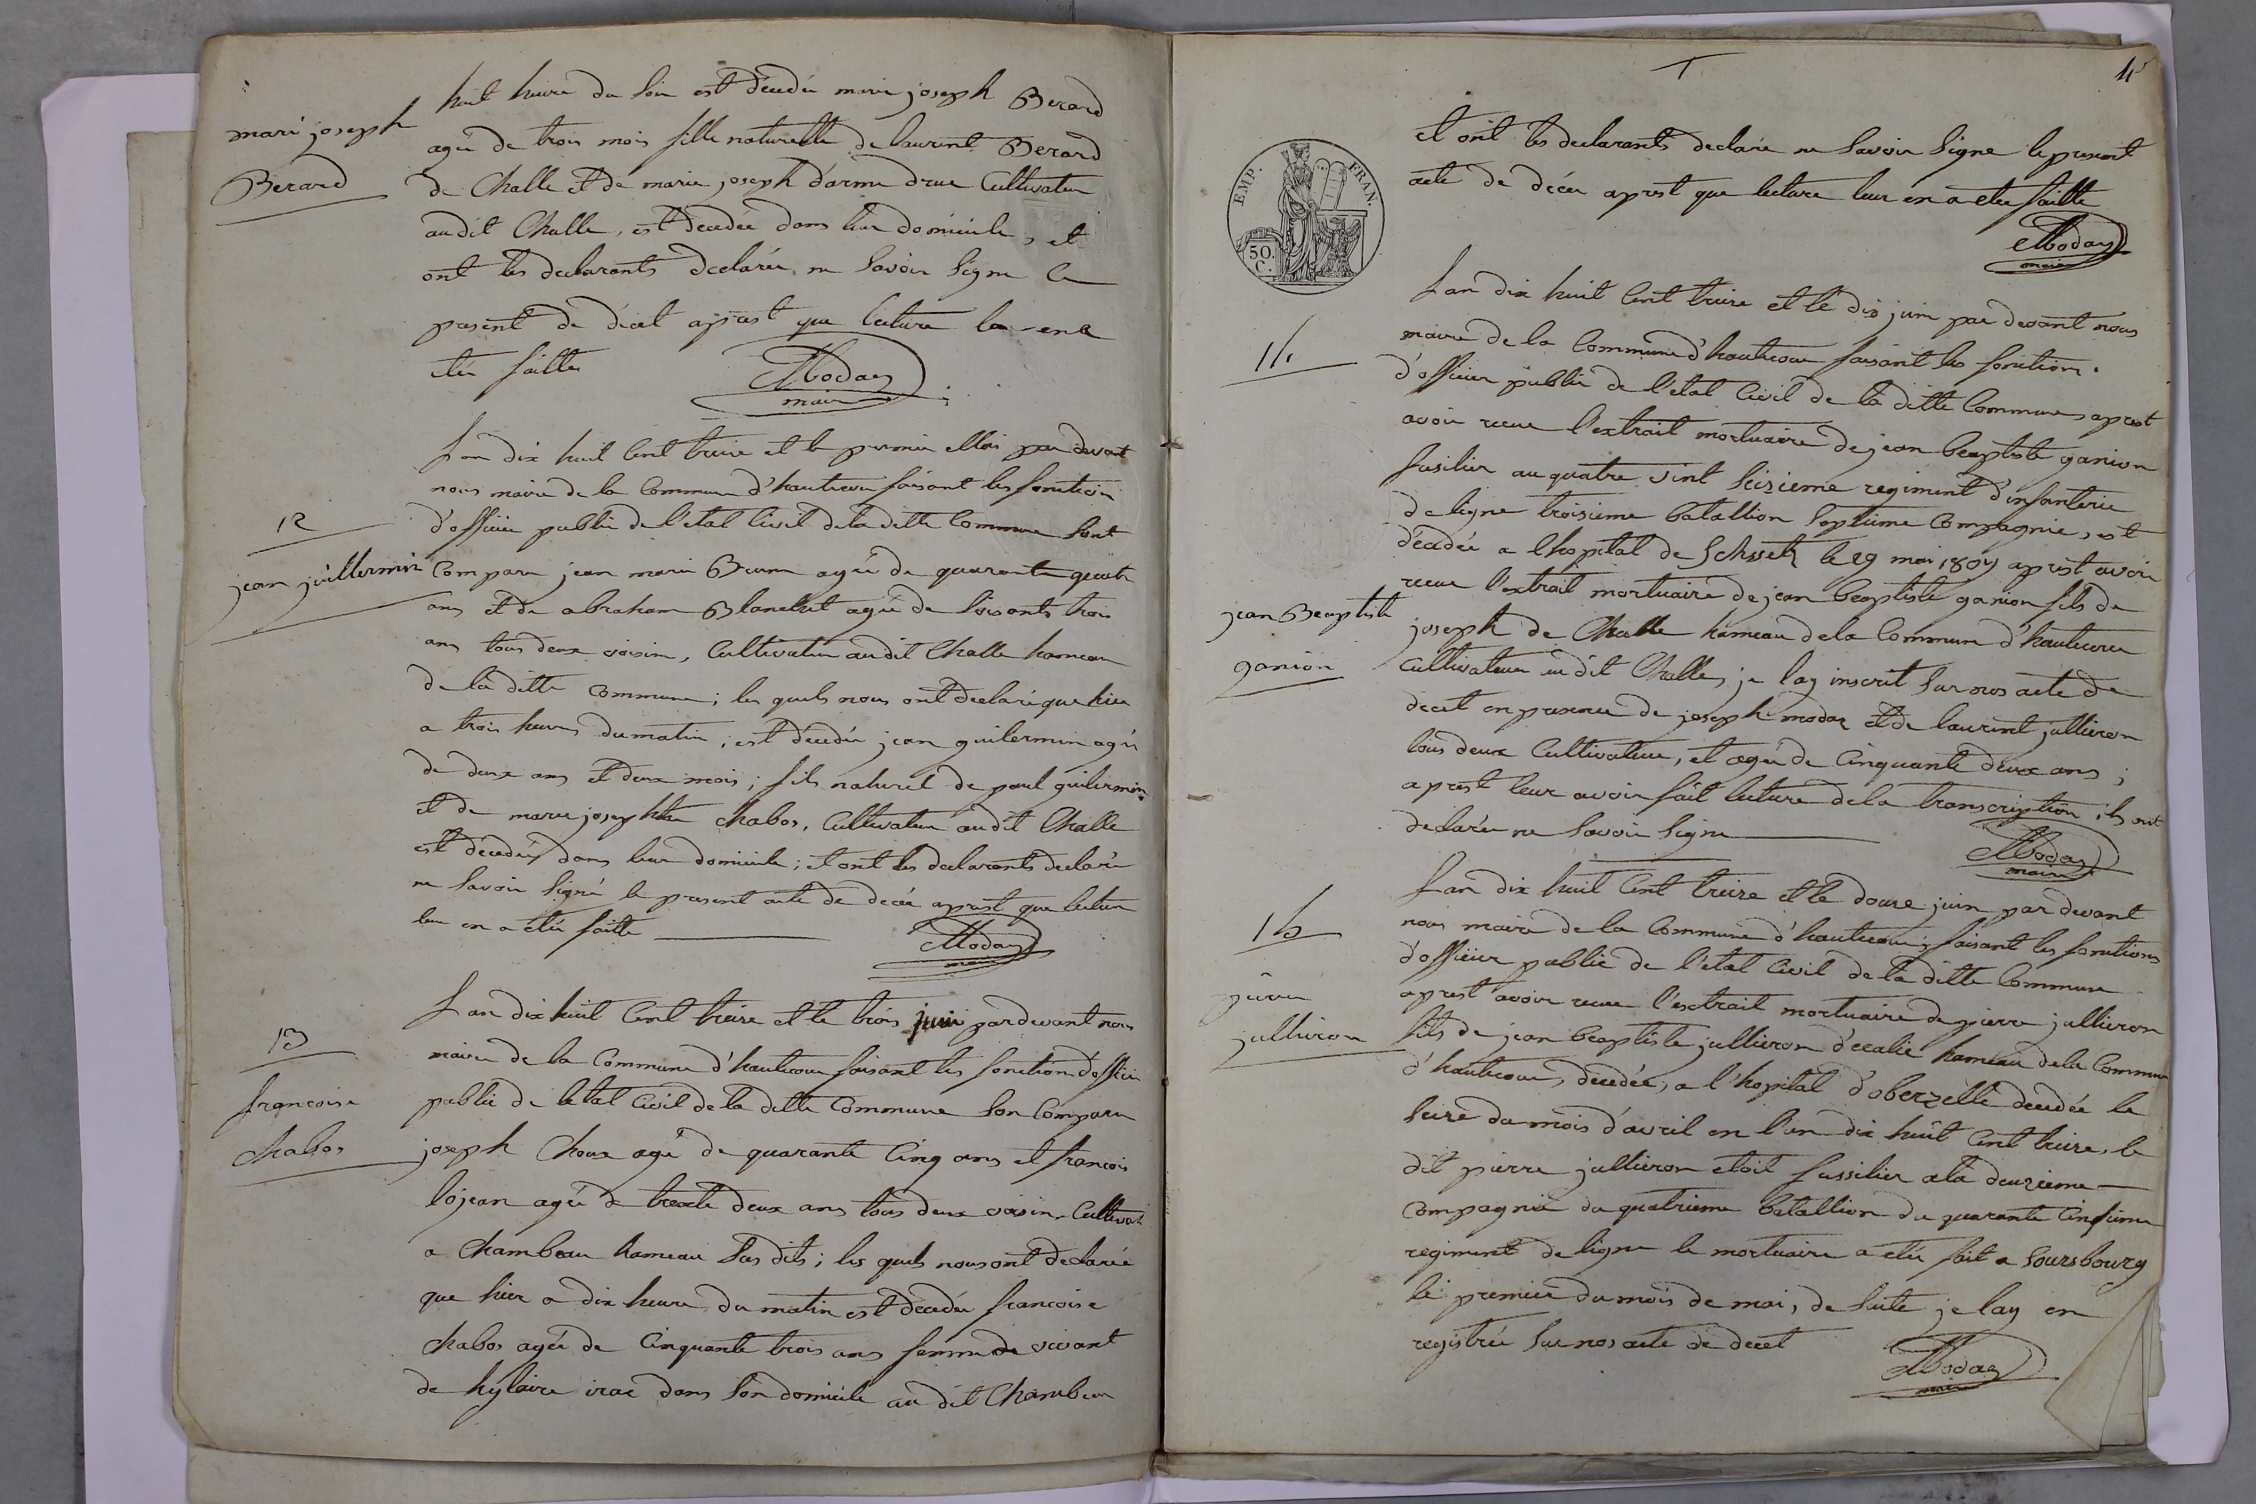 mari joseph
Berard
huit heure du soir est décedée marie joseph Berard
agée de trois mois fille naturelle de laurent Berard
de Challe et de marie joseph darme Cultivateur
audit Challe, est decedée dans leur domicile, et
ont les declarants declarée ne savoir signe le
present de décet aprest que lecture leur en a
étée faitte
Moday
maire
12
jean juillermin
L'an dix huit Cent treize et le premier Mai par devant
nous maire de la Commune d'hautecour faisant les fonction
d'officier public de l'état Civil de la ditte Commune sont
Comparu jean marie Brun agée de quarante quatre
ans et de abraham Blanchet agée de soixante trois
ans tous deux voisin, Cultivateur audit Challe hameau
de la ditte Commune; les quels nous ont declaré que hier
a trois heures du matin, est décedée jean guilermin agée
de deux ans et deux mois, fils naturel de paul guilermin
et de marie josephte Chabos, Cultivateur audit Challe
est décedée dans leur domicile; et ont les declarants declarée
ne savoir signé le present acte de décée aprest que lecture
leur en a étée faitte
Moday
maire
13
francoise
Chabos
L'an dix huit Cent treize et le trois juin par devant nous
maire de la Commune d'hautecour faisant les fonction d'officier
public de l'état Civil de la ditte Commune son Comparu
joseph Choux agée de quarante Cinq ans et francois
lojean agée de trente deux ans tous deux voisin Cultivat.
a Chambeau hameau sus dits; les quels nous ont declarée
que hier a dix heure du matin est décedée francoise
Chabos agée de Cinquante trois ans femme de vivant
de hylaire dans son domicile au dit Chambeau
et ont les declarants declarée ne savoir signe le present
acte de décée aprest que lecture leur en a étée faitte
Moday
maire
EMP. FRAN.
50.
C.
14
jean Beaptiste
ganion
L'an dix huit Cent treize et le dix juin par devant nous
maire de la Commune d'hautecour faisant les fonctions
d'officier public de l'état Civil de la ditte Commune, aprest
avoir receue l'extrait mortuaire de jean beaptiste ganion
fusilier au quatre vint seizieme regiment d'infanterie
de ligne troisieme batallion septieme Compagnie, est
décedée a l'hopital de le 29 mai 1809 aprest avoir
receue l'extrait mortuaire de jean beaptiste ganion fils de
joseph de Challe hameau de la Commune d'hautecour
Cultivateur au dit Challe, je lay inscrit sur nos acte de
decet en presence de joseph moday et de laurent jullieron
tous deux Cultivateur, et agée de Cinquante deux ans;
aprest leur avoir fait lecture de la transcription ils ont
declarée ne savoir signe
Moday
maire
15
pierre
jullieron
L'an dix huit Cent treize et le douze juin par devant
nous maire de la Commune d'hautecour faisant les fonctions
d'officier public de l'état Civil de la ditte Commune
aprest avoir receue l'extrait mortuaire de pierre jullieron
fils de jean beaptiste jullieron hameau de la Commune
d'hautecour, decedée, a l'hopital d'oberzelle decedée le
seize du mois d'avril en l'an dix huit Cent treize, le
dit pierre jullieron etoit fussilier a la deuzieme
Compagnie du quatrieme batallion du quarante Cinquime
regiment de ligne le mortuaire a étée fait a soursbourg
le premier du mois de mai, de suite je lay en
registrée sur nos acte de decet
Moday
maire